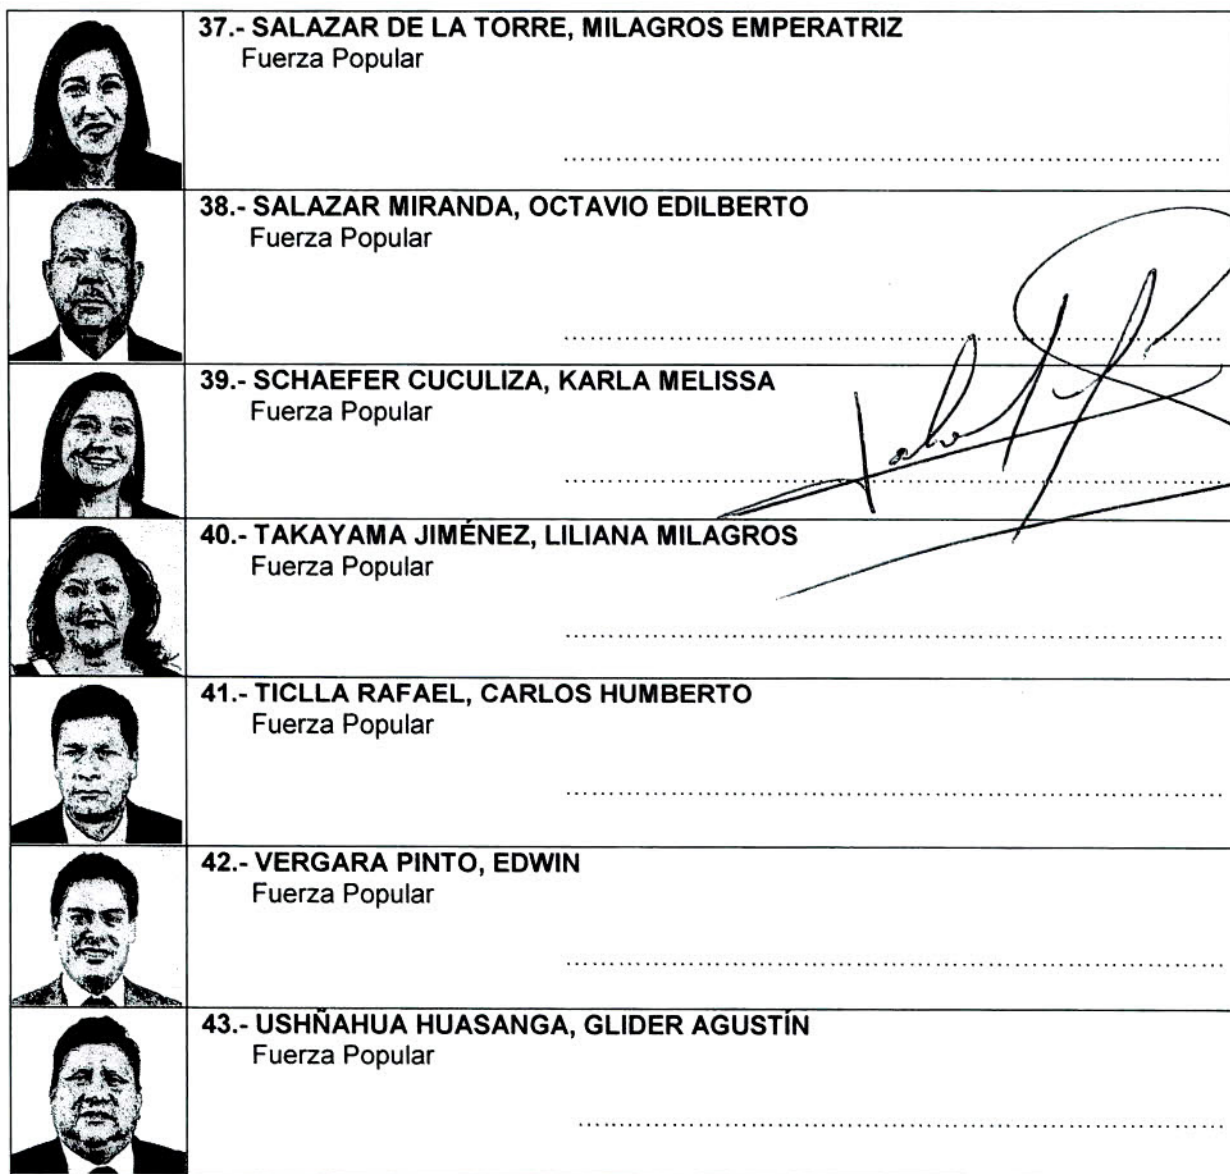 37.- SALAZAR DE LA TORRE, MILAGROS EMPERATRIZ
Fuerza Popular
38.- SALAZAR MIRANDA, OCTAVIO EDILBERTO
Fuerza Popular
39.- SCHAEFER CUCULIZA, KARLA MELISSA
Fuerza Popular
40.- TAKAYAMA JIMÉNEZ, LILIANA MILAGROS
Fuerza Popular
41.- TICLLA RAFAEL, CARLOS HUMBERTO
Fuerza Popular
42.- VERGARA PINTO, EDWIN
Fuerza Popular
43.- USHÑAHUA HUASANGA, GLIDER AGUSTÍN
Fuerza Popular